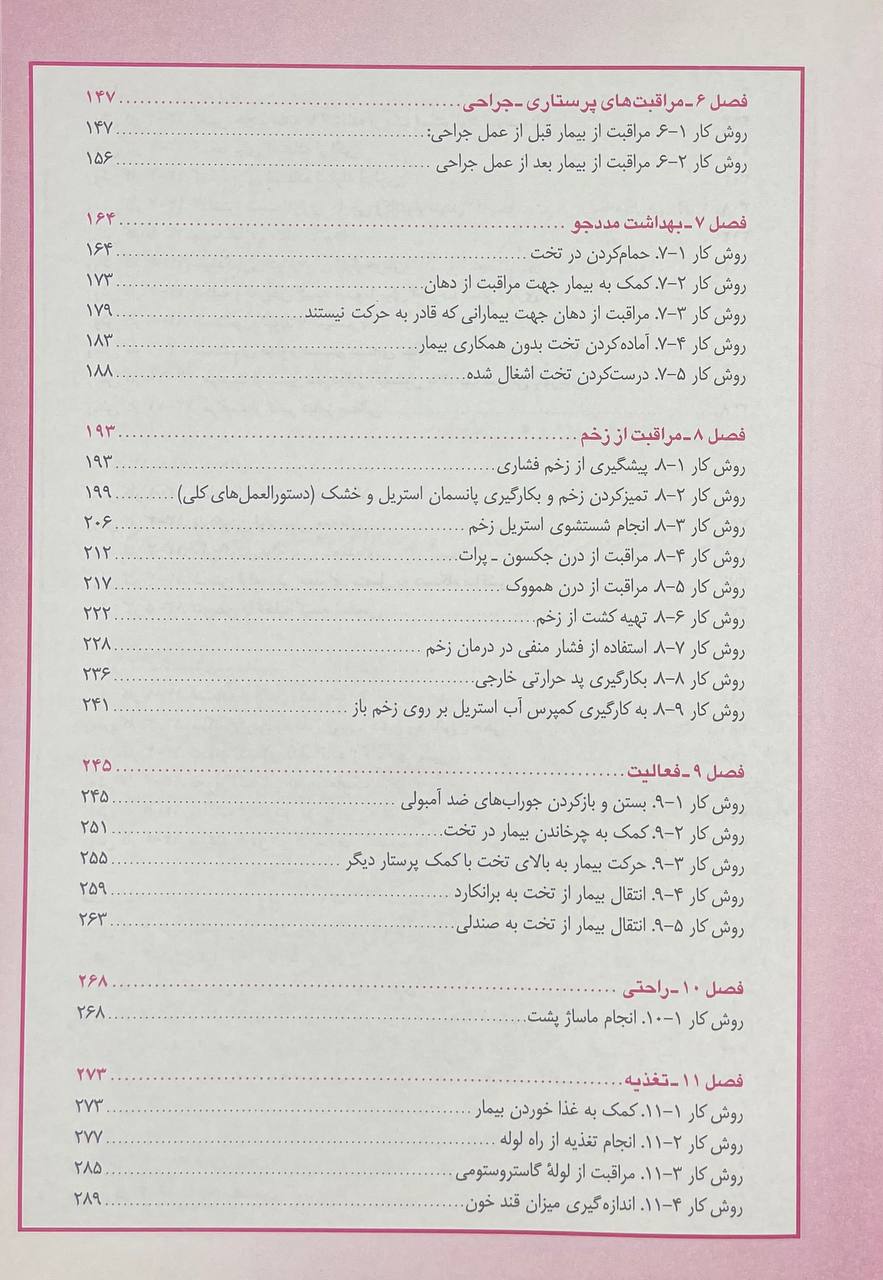 فصل ۶ـ مراقبت‌های پرستاری ـ جراحی ........ ۱۴۷
روش کار ۱-۶. مراقبت از بیمار قبل از عمل جراحی: ........ ۱۴۷
روش کار ۲-۶. مراقبت از بیمار بعد از عمل جراحی ........ ۱۵۶
فصل ۷ـ بهداشت مددجو ........ ۱۶۴
روش کار ۱-۷. حمام‌کردن در تخت ........ ۱۶۴
روش کار ۲-۷. کمک به بیمار جهت مراقبت از دهان ........ ۱۷۳
روش کار ۳-۷. مراقبت از دهان جهت بیمارانی که قادر به حرکت نیستند ........ ۱۷۹
روش کار ۴-۷. آماده‌کردن تخت بدون همکاری بیمار ........ ۱۸۳
روش کار ۵-۷. درست‌کردن تخت اشغال شده ........ ۱۸۸
فصل ۸ـ مراقبت از زخم ........ ۱۹۳
روش کار ۱-۸. پیشگیری از زخم فشاری ........ ۱۹۳
روش کار ۲-۸. تمیزکردن زخم و بکارگیری پانسمان استریل و خشک (دستورالعمل‌های کلی) ........ ۱۹۹
روش کار ۳-۸. انجام شستشوی استریل زخم ........ ۲۰۶
روش کار ۴-۸. مراقبت از درن جکسون ـ پرات ........ ۲۱۲
روش کار ۵-۸. مراقبت از درن همووک ........ ۲۱۷
روش کار ۶-۸. تهیه کشت از زخم ........ ۲۲۲
روش کار ۷-۸. استفاده از فشار منفی در درمان زخم ........ ۲۲۸
روش کار ۸-۸. بکارگیری پد حرارتی خارجی ........ ۲۳۶
روش کار ۹-۸. به کارگیری کمپرس آب استریل بر روی زخم باز ........ ۲۴۱
فصل ۹ـ فعالیت ........ ۲۴۵
روش کار ۱-۹. بستن و بازکردن جوراب‌های ضد آمبولی ........ ۲۴۵
روش کار ۲-۹. کمک به چرخاندن بیمار در تخت ........ ۲۵۱
روش کار ۳-۹. حرکت بیمار به بالای تخت با کمک پرستار دیگر ........ ۲۵۵
روش کار ۴-۹. انتقال بیمار از تخت به برانکارد ........ ۲۵۹
روش کار ۵-۹. انتقال بیمار از تخت به صندلی ........ ۲۶۳
فصل ۱۰ـ راحتی ........ ۲۶۸
روش کار ۱-۱۰. انجام ماساژ پشت ........ ۲۶۸
فصل ۱۱ـ تغذیه ........ ۲۷۳
روش کار ۱-۱۱. کمک به غذا خوردن بیمار ........ ۲۷۳
روش کار ۲-۱۱. انجام تغذیه از راه لوله ........ ۲۷۷
روش کار ۳-۱۱. مراقبت از لولهٔ گاستروستومی ........ ۲۸۵
روش کار ۴-۱۱. اندازه‌گیری میزان قند خون ........ ۲۸۹